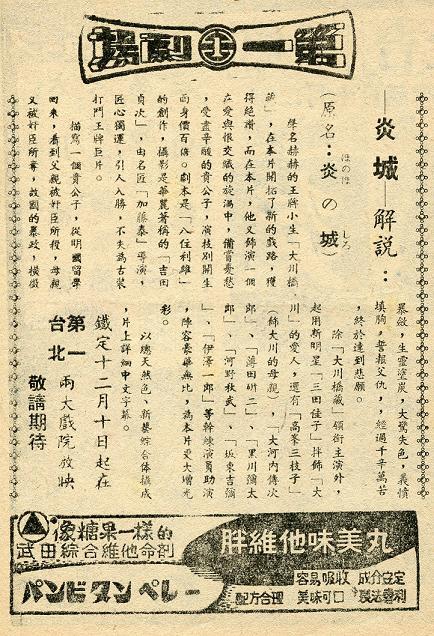 第一劇場
炎城 解說:
(原名:炎の城)
ほのほ しろ
學名赫赫的王牌小生「大川橋
藏」,在本片開拓了新的戲路,獲
得絕讚,而在本片,他又飾演一個
在愛與恨交織的旋渦中,備嘗憂愁
,受盡辛酸的貴公子,演技別開生
面身價百倍。劇本是「八住利雄」
的創作,攝影是華麗著稱的「吉田
貞次」,由名匠「加藤泰」導演,
匠心獨運,引人入勝,不失為古裝
打鬥王牌巨片。
描寫一個貴公子,從明國留學
回來,看到父親被奸臣所殺,母親
又被奸臣所奪,故國的暴政,橫徵
暴歛,生靈塗炭,大驚失色,義憤
填胸,誓報父仇,經過千辛萬苦
,終於達到悲願。
除「大川橋藏」領銜主演外,
起用新明星「三田佳子」拌飾「大
川」的愛人,還有「高峯三枝子」
(飾大川的母親),「大河內傳次
郎」、「薄田研二」、「黑川彌太
郎」、「河野秋武」、「坂東吉彌
」、「伊澤一郎」等幹練演員助演
,陣容豪華無比,為本片更大增光
彩。
以總天然色、新藝綜合体攝成
,片上詳細中文字幕。
鐵定十二月十日起在
第一
台北
兩大戲院放映
敬請期待
像糖果一樣的
武田綜合維他命劑
パンビタンペレー
胖維他味美丸
容易吸收 成分安定
配方合理 美味可口 製法專利